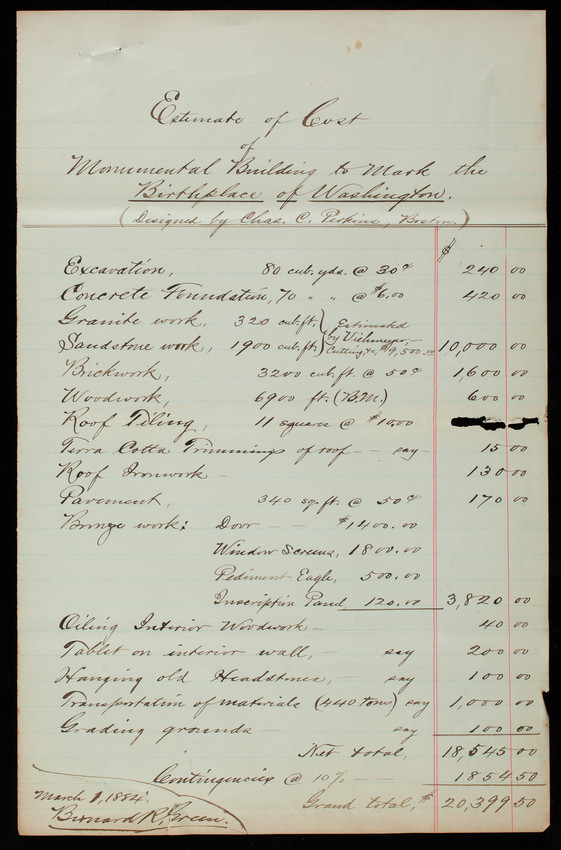 Estimate of Cost
of
Monumental Building to Mark the
Birthplace of Washington.
(Designed by Chas. C. Perkins, Boston.)
$
Excavation, 80 cub. yds. @ 30¢ 240 00
Concrete Foundation, 70 " " @ $6.00 420 00
Granite work, 320 cub. ft. } Estimated
by Viehmeyer,—
Sandstone work, 1900 cub. ft. } Cutting &c, $9,500.00 10,000 00
Brickwork, 3200 cub. ft. @ 50¢ 1,600 00
Woodwork, 6900 ft. (B.M.) 600 00
Roof Tiling, 11 squares @ $10.00
Terra Cotta Trimmings of roof — say — 15 00
Roof Ironwork — 130 00
Pavement, 340 sq. ft. @ 50¢ 170 00
Bronze work: Door — — $1400.00
Window Screens, 1800.00
Pediment Eagle, 500.00
Inscription Panel, 120.00 3,820 00
Oiling Interior Woodwork — 40 00
Tablet on interior wall, — say 200 00
Hanging old Headstones, — say 100 00
Transportation of materials (440 tons) say 1,000 00
Grading grounds — say 100 00
Net total, 18,545 00
Contingencies @ 10% — — 1854 50
Grand total, $ 20,399 50
March 1, 1884.
Bernard R. Green.